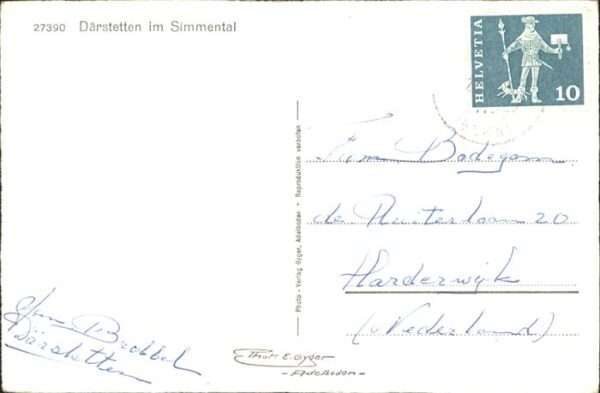 27390 Därstetten im Simmental
HELVETIA
10
Fam Bodegom
de Ruiterlaan 20
Harderwijk
(Nederland)
Photo - Verlag Gyger, Adelboden • Reproduktion verboten
Därstetten
Photo E. Gyger
- Adelboden -